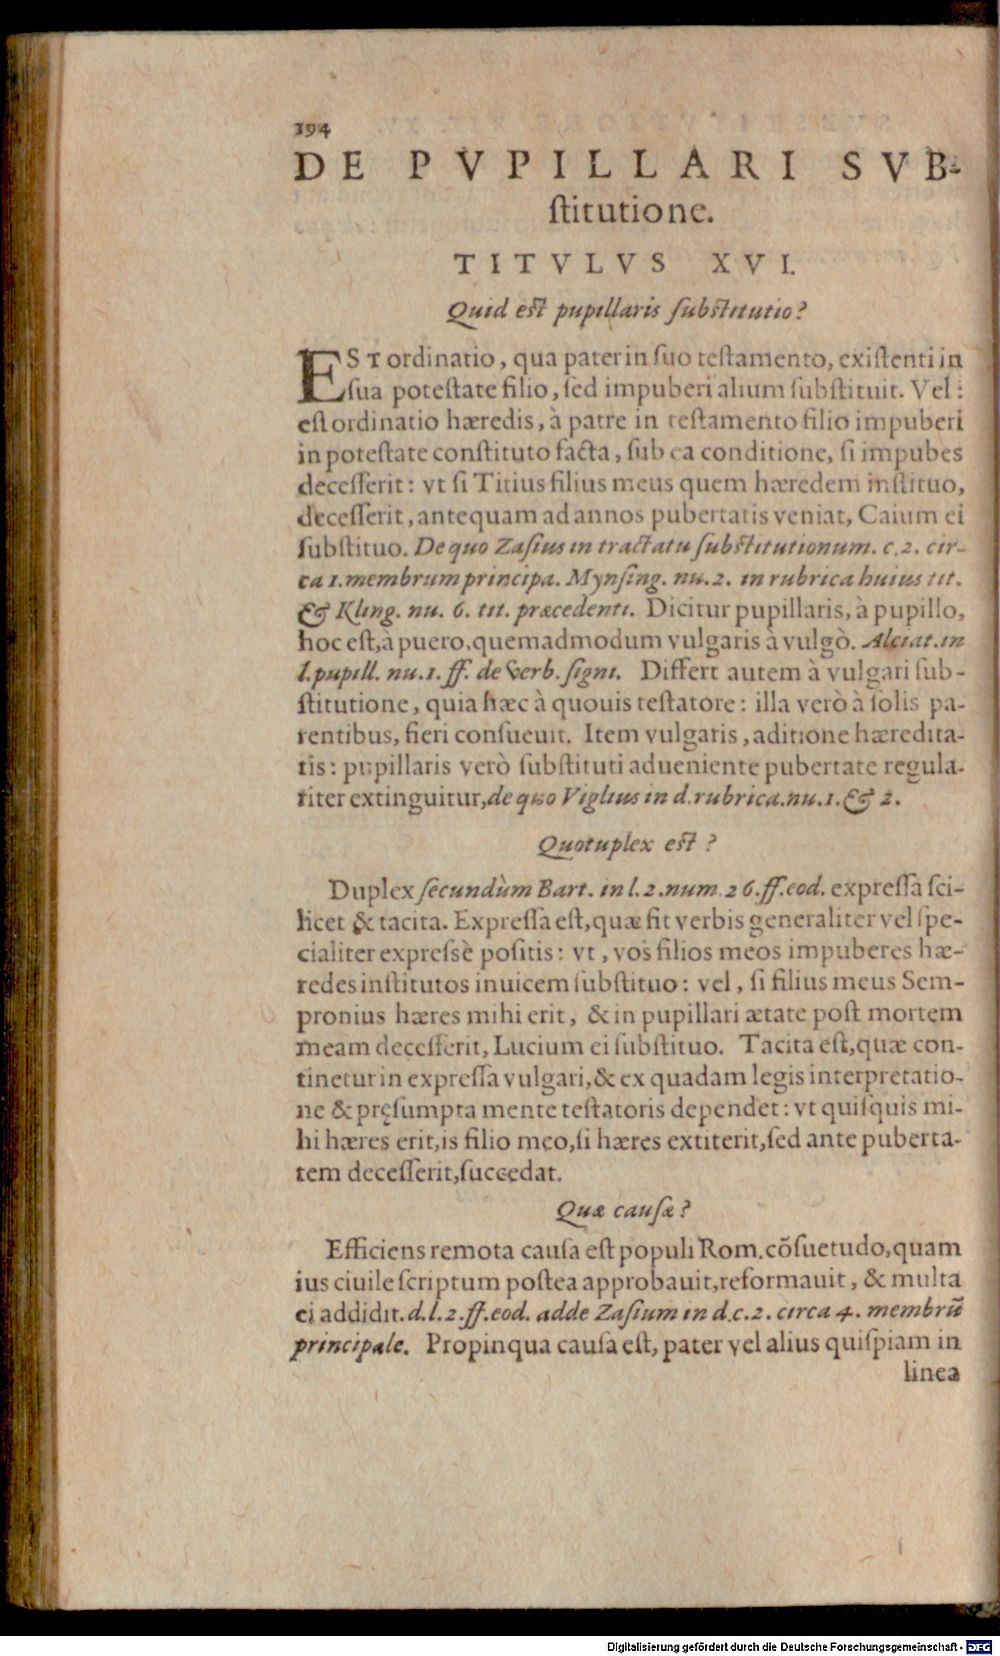 194
DE PVPILLARI SVB-
ſtitutione.
TITVLVS XVI.
Quid est pupillaris ſubstitutio?
EST ordinatio, qua pater in ſuo teſtamento, exiſtenti in
ſua poteſtate filio, ſed impuberi alium ſubſtituit. Vel:
eſt ordinatio hæredis, à patre in teſtamento filio impuberi
in poteſtate conſtituto facta, ſub ea conditione, ſi impubes
deceſſerit: vt ſi Titius filius meus quem hæredem inſtituo,
deceſſerit, antequam ad annos pubertatis veniat, Caium ei
ſubſtituo. De quo Zaſius in tractatu ſubstitutionum. c. 2. cir-
ca 1. membrum principa. Mynſing. nu. 2. in rubrica huius tit.
& Kling. nu. 6. tit. præcedenti. Dicitur pupillaris, à pupillo,
hoc eſt, à puero, quemadmodum vulgaris à vulgò. Alciat. in
l. pupill. nu. 1. ff. de Verb. ſigni. Differt autem à vulgari ſub-
ſtitutione, quia hæc à quouis teſtatore: illa verò à ſolis pa-
rentibus, fieri conſueuit. Item vulgaris, aditione hæredita-
tis: pupillaris verò ſubſtituti adueniente pubertate regula-
riter extinguitur, de quo Viglius in d. rubrica. nu. 1. & 2.
Quotuplex est?
Duplex ſecundùm Bart. in l. 2. num. 26. ff. eod. expreſſa ſci-
licet & tacita. Expreſſa eſt, quæ fit verbis generaliter vel ſpe-
cialiter expreſsè poſitis: vt, vos filios meos impuberes hæ-
redes inſtitutos inuicem ſubſtituo: vel, ſi filius meus Sem-
pronius hæres mihi erit, & in pupillari ætate poſt mortem
meam deceſſerit, Lucium ei ſubſtituo. Tacita eſt, quæ con-
tinetur in expreſſa vulgari, & ex quadam legis interpretatio-
ne & pręſumpta mente teſtatoris dependet: vt quiſquis mi-
hi hæres erit, is filio meo, ſi hæres extiterit, ſed ante puberta-
tem deceſſerit, ſuccedat.
Quæ cauſæ?
Efficiens remota cauſa eſt populi Rom. cõſuetudo, quam
ius ciuile ſcriptum poſtea approbauit, reformauit, & multa
ei addidit. d. l. 2. ff. eod. adde Zaſium in d. c. 2. circa 4. membrũ
principale. Propinqua cauſa eſt, pater vel alius quiſpiam in
linea
Digitalisierung gefördert durch die Deutsche Forschungsgemeinschaft - DFG